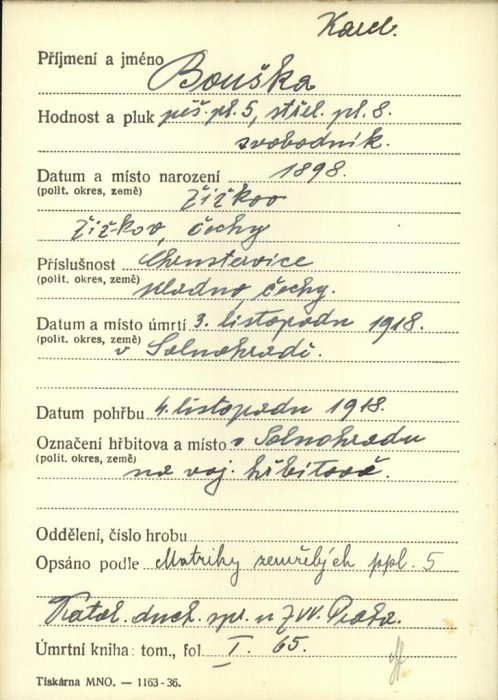 Karel.
Příjmení a jméno Bouška
Hodnost a pluk pěš. pl. 5, střel. pl. 8.
svobodník.
Datum a místo narození 1898.
(polit. okres, země) Žižkov
Žižkov, Čechy
Příslušnost
(polit. okres, země) Kladno, Čechy.
Datum a místo úmrtí 3. listopadu 1918.
(polit. okres, země) v Solnohradě.
Datum pohřbu 4. listopadu 1918.
Označení hřbitova a místo v Solnohradu
(polit. okres, země) na voj. hřbitově.
Oddělení, číslo hrobu
Opsáno podle Matriky zemřelých ppl. 5
Katol. duch. spr. u ZVV. Praha.
Úmrtní kniha: tom., fol. I. 65.
Tiskárna MNO. — 1163-36.